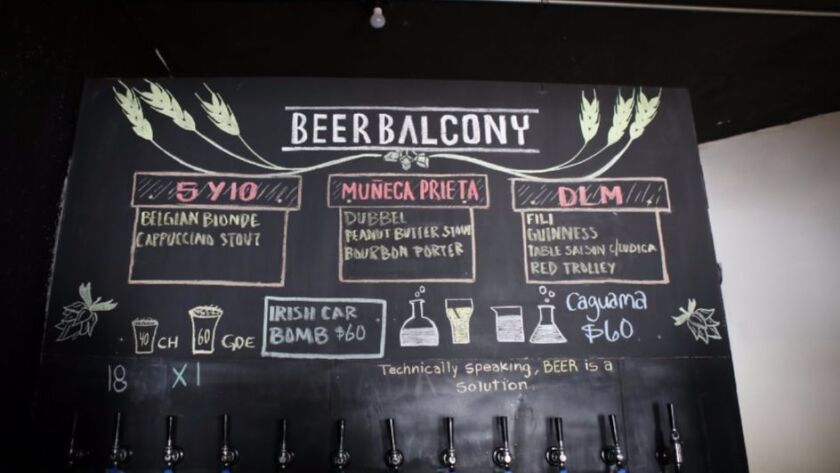 BEERBALCONY
5 Y 10
BELGIAN BLONDE
CAPPUCCINO STOUT
MUÑECA PRIETA
DUBBEL
PEANUT BUTTER STOUT
BOURBON PORTER
DLM
FILI
GUINNESS
TABLE SAISON C/LUDICA
RED TROLLEY
40 CH
60 GDE
IRISH CAR
BOMB $60
Caguama
$60
18 X1
Technically speaking, BEER is a
solution